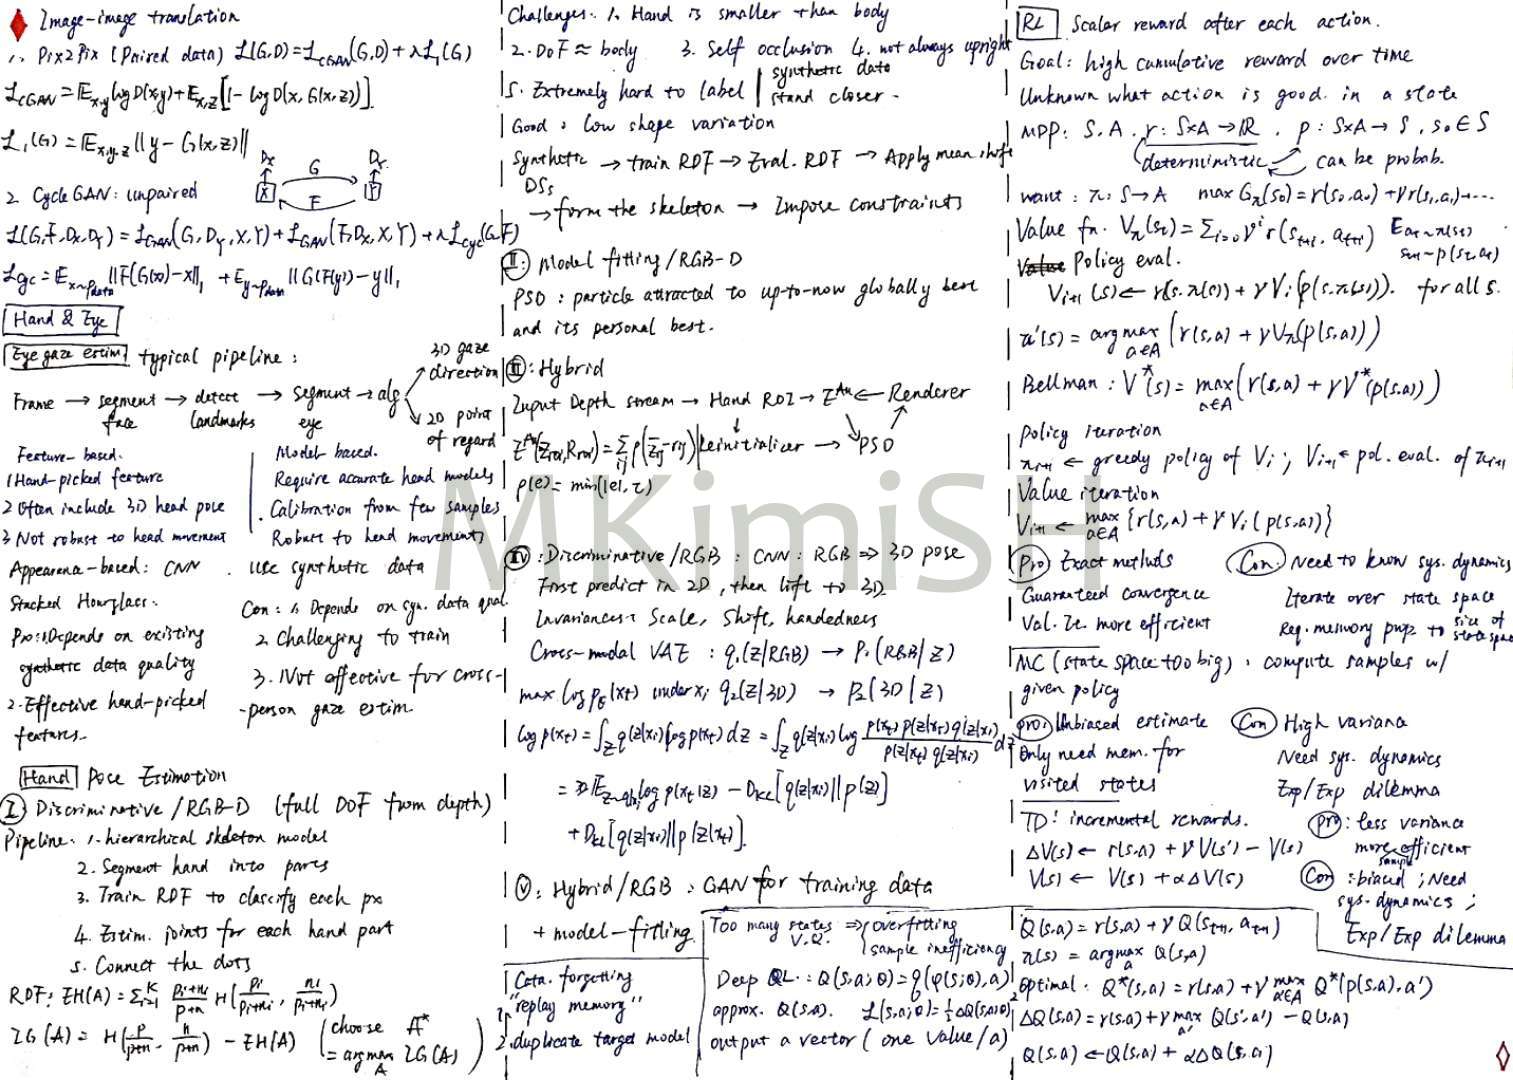 Image-image translation
1. Pix2Pix (Paired data) L(G,D)=L_CGAN(G,D)+λL₁(G)
L_CGAN = E_x,y log D(x,y)+E_x,z[1-log D(x,G(x,z))].
L₁(G) = E_x,y,z ||y-G(x,z)||
2. CycleGAN: unpaired
Dx
X
G
F
Dy
Y
L(G,F,Dx,Dy) = L_GAN(G,Dy,X,Y)+L_GAN(F,Dx,X,Y)+λL_cyc(G,F)
L_cyc = E_x~pdata ||F(G(x))-x||₁ + E_y~pdata ||G(F(y))-y||₁
Hand & Eye
Eye gaze estim typical pipeline:
Frame → segment face → detect landmarks → segment eye → alg.
3D gaze direction
2D point of regard
Feature-based.
1 Hand-picked feature
2 Often include 3D head pose
3 Not robust to head movement
Model-based.
Require accurate head models
. Calibration from few samples
Robust to head movements
Appearance-based: CNN. use synthetic data
Stacked Hourglass.
Pro: 1. Depends on existing
synthetic data quality
2. Effective hand-picked
features.
Con: 1. Depends on syn. data qual.
2. Challenging to train
3. Not effective for cross-
-person gaze estim.
Hand Pose Estimation
I Discriminative/RGB-D (full DOF from depth)
Pipeline: 1. hierarchical skeleton model
2. Segment hand into parts
3. Train RDF to classify each px
4. Estim. joints for each hand part
5. Connect the dots
RDF: EH(A) = Σᵢ₌₁ᴷ (pi+ni)/(p+n) H(pi/(pi+ni), ni/(pi+ni))
IG(A) = H(p/(p+n), n/(p+n)) - EH(A) (choose A* = argmax_A IG(A))
Challenges: 1. Hand is smaller than body
2. DoF ≈ body 3. Self occlusion 4. not always upright
5. Extremely hard to label | synthetic data
stand closer.
Good: low shape variation
Synthetic DSs → train RDF → Eval. RDF → Apply mean shift
→ form the skeleton → Impose constraints
II: Model fitting/RGB-D
PSO: particle attracted to up-to-now globally best
and its personal best.
III: Hybrid
Input Depth stream → Hand ROI → E^Au ← Renderer
E^Au(Z_roi,R_roi) = Σ_ij ρ(z_ij-r_ij) | Reinitializer → PSO
ρ(e) = min(|e|,τ)
MKimiSH
IV: Discriminative/RGB: CNN: RGB ⇒ 3D pose
First predict in 2D, then lift to 3D
Invariances: Scale, Shift, handedness
Cross-modal VAE: q₁(z|RGB) → p₁(RGB|z)
max log pθ(xt) under xi q₂(z|3D) → p₂(3D|z)
log p(xt) = ∫_z q(z|xi) log p(xt) dz = ∫_z q(z|xi) log (p(xt)p(z|xt)q(z|xi))/(p(z|xt)q(z|xi)) dz
= E_z~q(z|xi) log p(xt|z) - D_KL[q(z|xi)||p(z)]
+ D_KL[q(z|xi)||p(z|xt)].
V: Hybrid/RGB: GAN for training data
+ model-fitting.
Cata. forgetting
1. "replay memory"
2. duplicate target model
Too many states V.Q. ⇒ overfitting
sample inefficiency
Deep QL: Q(s,a;θ)=q(φ(s;θ),a)
approx. Q(s,a). L(s,a;θ)=½ΔQ(s,a;θ)²
output a vector (one value/a)
RL Scalar reward after each action.
Goal: high cumulative reward over time
Unknown what action is good in a state
MDP: S, A, r: S×A→R, p: S×A→S, s₀∈S
deterministic can be probab.
want: π: S→A max G_π(s₀)=r(s₀,a₀)+γr(s₁,a₁)+...
Value fn. V_π(st) = Σᵢ₌₀ γⁱ r(st+i, at+i) E at~π(st)
st+1~p(st,at)
Value Policy eval.
V_i+1(s) ← r(s,π(s)) + γVi(p(s,π(s))). for all s.
π'(s) = argmax_a∈A (r(s,a) + γV_π(p(s,a)))
Bellman: V*(s) = max_a∈A (r(s,a) + γV*(p(s,a)))
policy iteration
π_i+1 ← greedy policy of Vi; V_i+1 ← pol. eval. of π_i+1
Value iteration
V_i+1 ← max_a∈A {r(s,a) + γVi(p(s,a))}
Pro Exact methods
Guaranteed convergence
Val. It. more efficient
Con. Need to know sys. dynamics
Iterate over state space
Req. memory prop to size of state space
MC (state space too big): compute samples w/
given policy
Pro: Unbiased estimate
Only need mem. for
visited states
Con High variance
Need sys. dynamics
Exp/Exp dilemma
TD: incremental rewards.
ΔV(s) ← r(s,a) + γV(s') - V(s)
V(s) ← V(s) + αΔV(s)
Pro: less variance
more sample efficient
Con: biased; Need
sys. dynamics;
Exp/Exp dilemma
Q(s,a) = r(s,a) + γQ(st+1, at+1)
π(s) = argmax_a Q(s,a)
optimal: Q*(s,a) = r(s,a) + γ max_a'∈A Q*(p(s,a),a')
ΔQ(s,a) = r(s,a) + γ max_a' Q(s',a') - Q(s,a)
Q(s,a) ← Q(s,a) + αΔQ(s,a)